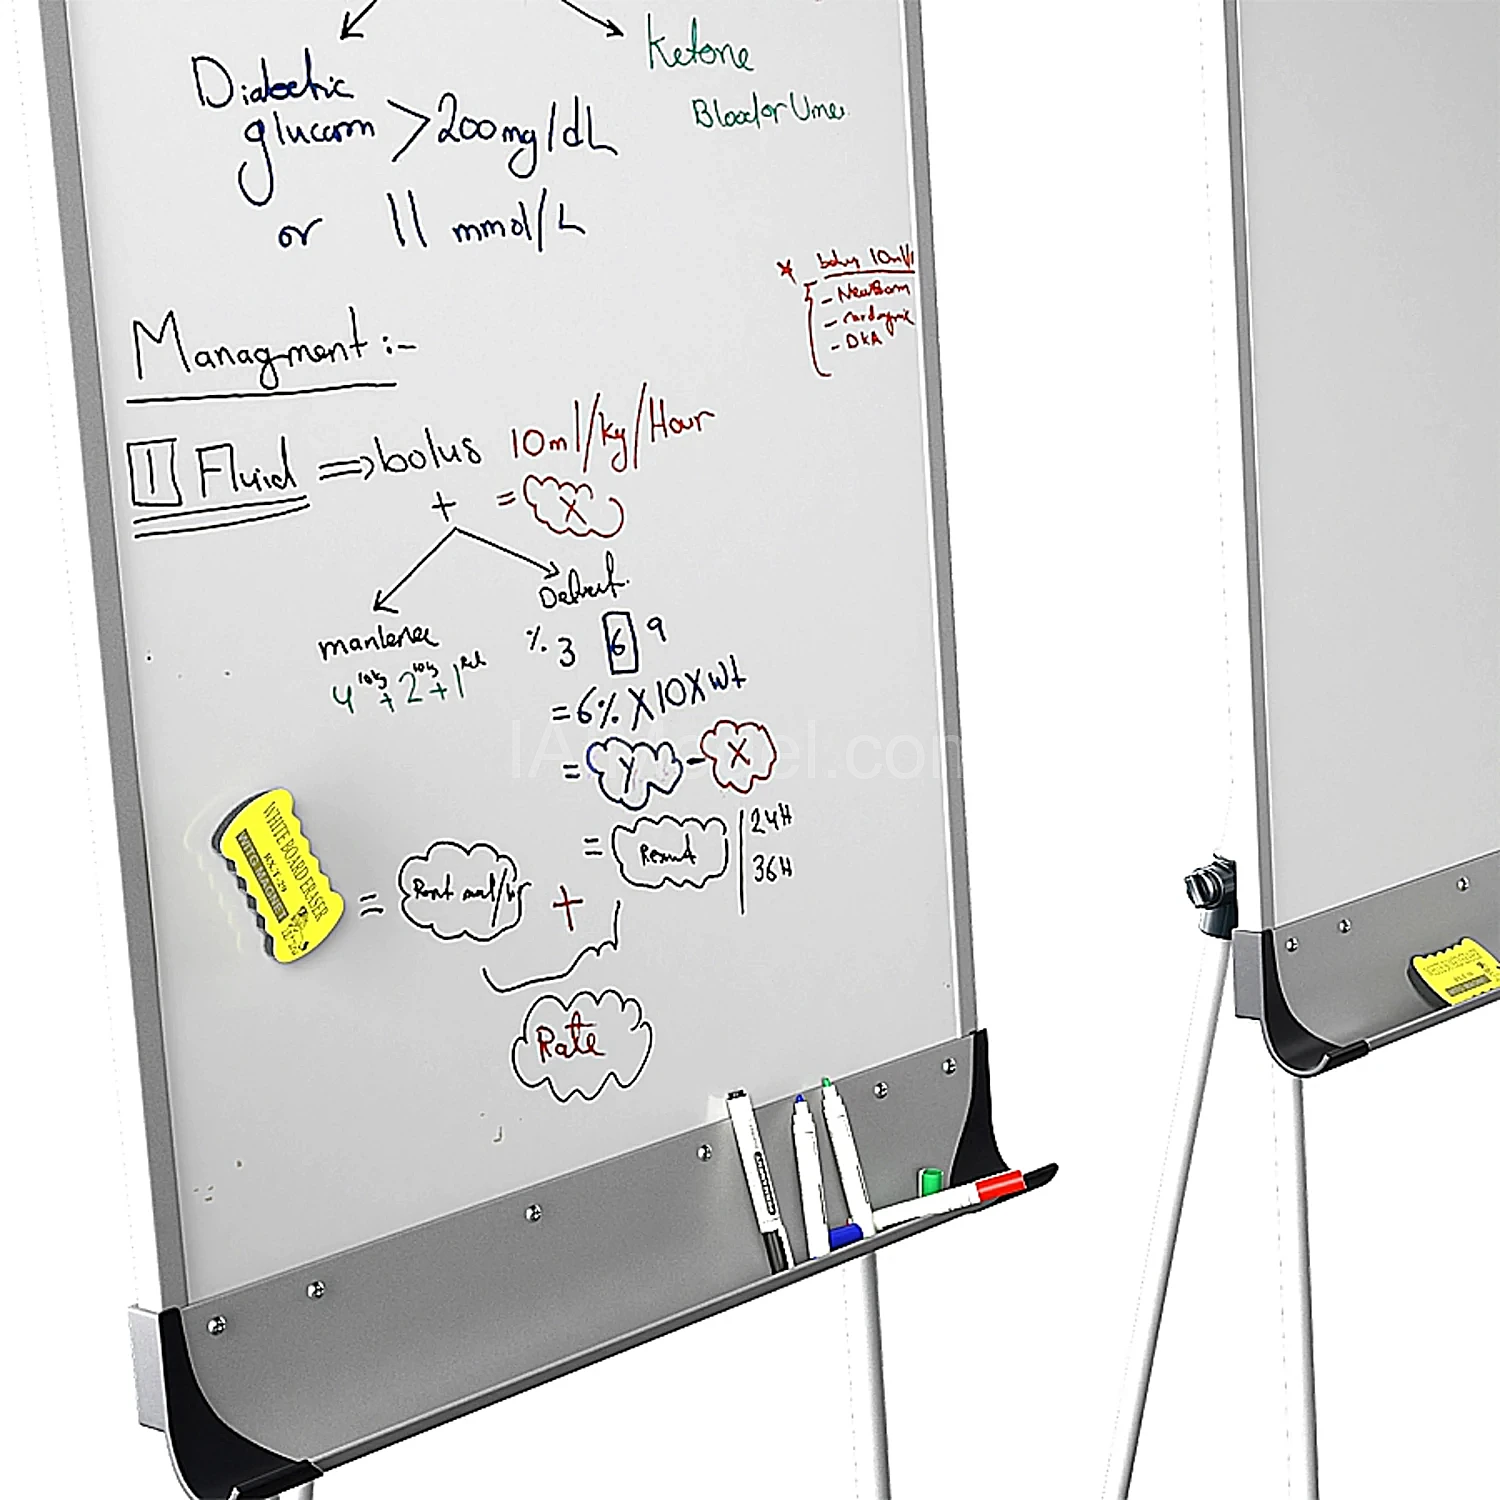 Diabetic
glucorm >200mg/dL
or 11 mmol/L
Ketone
Blood or Urine
* bolus 10ml/
- NewBorn
- cardogenic
- DKA
Managment :-
1 Fluid ⇒ bolus 10ml/kg/Hour
+ = X
mantenec
4 10kg + 2 10kg + 1
Deficit
% 3 6 9
= 6% X 10 X wt
= Y - X
= Result 24H
36H
= +
Rate
WHITE BOARD ERASER
WITH MAGNET